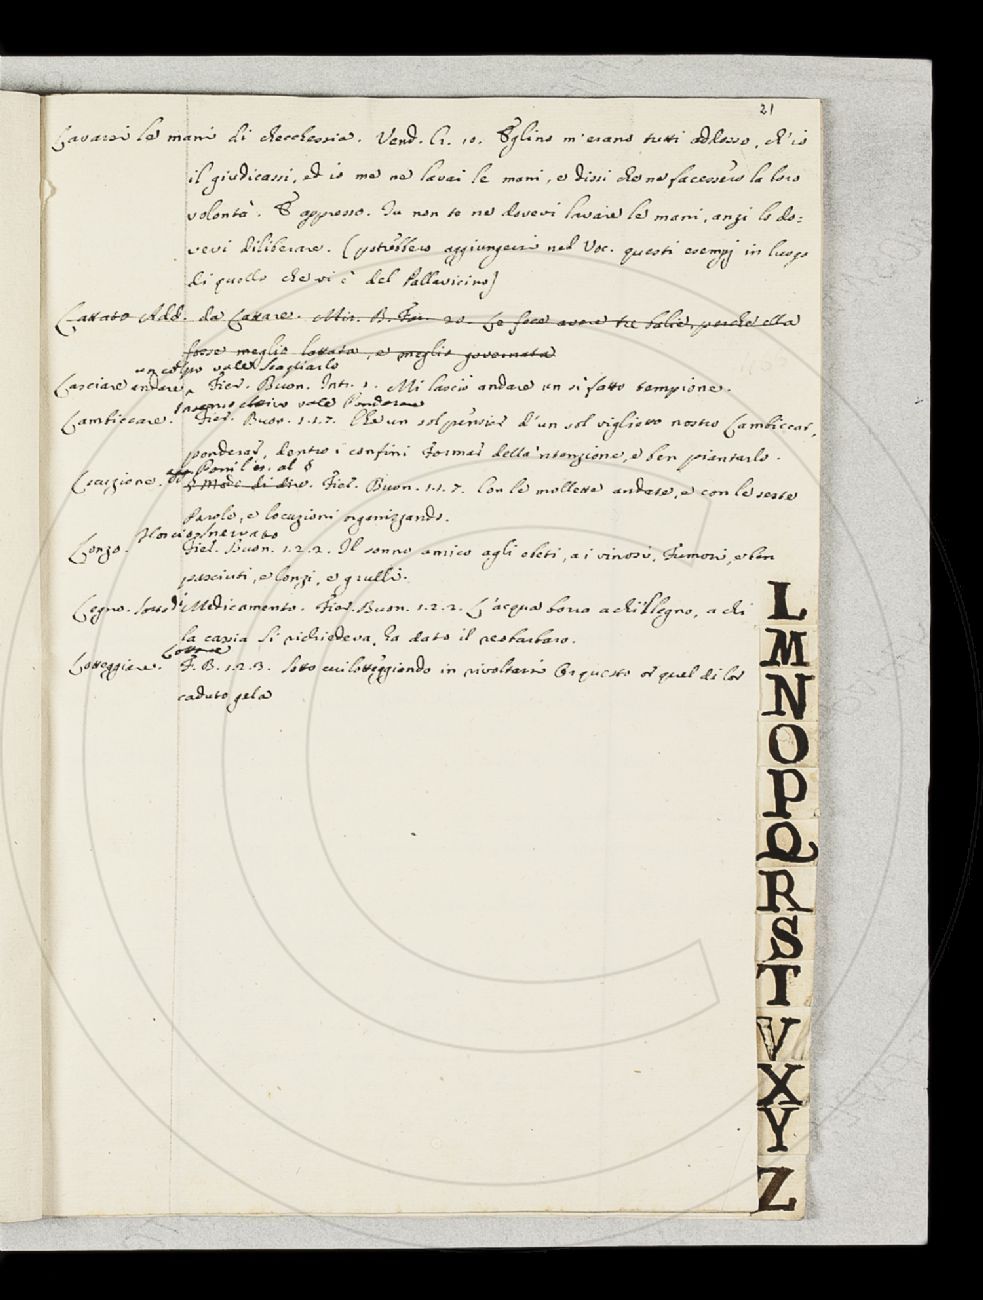 21
Lavarsi le mani di checchessia. Vend. Cr. 10. Eglino m'erano tutti addosso, ch'io
il giudicassi, ed io me ne lavai le mani, e dissi che ne facessero la loro
volontà. E appresso. Tu non te ne dovevi lavare le mani, anzi lo do=
vevi diliberare. (potrebbero aggiungersi nel Voc. questi esempj in luogo
di quello che vi è del Pallavicino)
Lattato Add. da Lattare. Mir. B. 20. Le fece avere tre balie, perche ella
fosse meglio lattata, e meglio governata
un colpo vale Scagliarlo
Lasciare andare. Fier. Buon. Intr. 1. Mi lasciò andare un sì fatto tempione.
In senso attivo vale Ponderare
Lambiccare. Fier. Buon. 1.1.7. Che un sol pensier d'un sol viglietto nostro Lambiccar,
ponderar, dentro i confini Formar della 'ntenzione, e ben piantarlo.
Ponil es. al §
Locuzione. § Modi di dire. Fier. Buon. 1.1.7. Con le mollette andate, e con le seste
Parole, e locuzioni organizzando.
Floscio, snervato
Lonzo. Fier. Buon. 1.2.2. Il sonno amico agli ebeti, a i vinosi, Fumosi, e ben
pasciuti, e lonzi, e grulli.
Legno. sotto di Medicamento. Fier. Buon. 1.2.2. L'acqua borra a chi 'l legno, a chi
la cassia Si richiedeva, ha dato il reobarbaro.
Lottare
Lotteggiare. F. B. 1.2.3. lotteggiando in rivoltarsi Or questo or quel di lor
caduto gela
L
M
N
O
P
Q
R
S
T
V
X
Y
Z